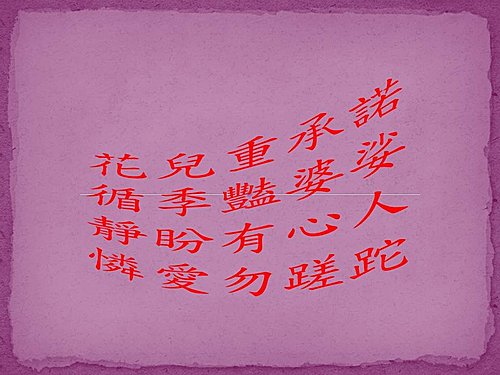 花兒重承諾
循季豔婆娑
靜盼有心人
憐愛勿蹉跎